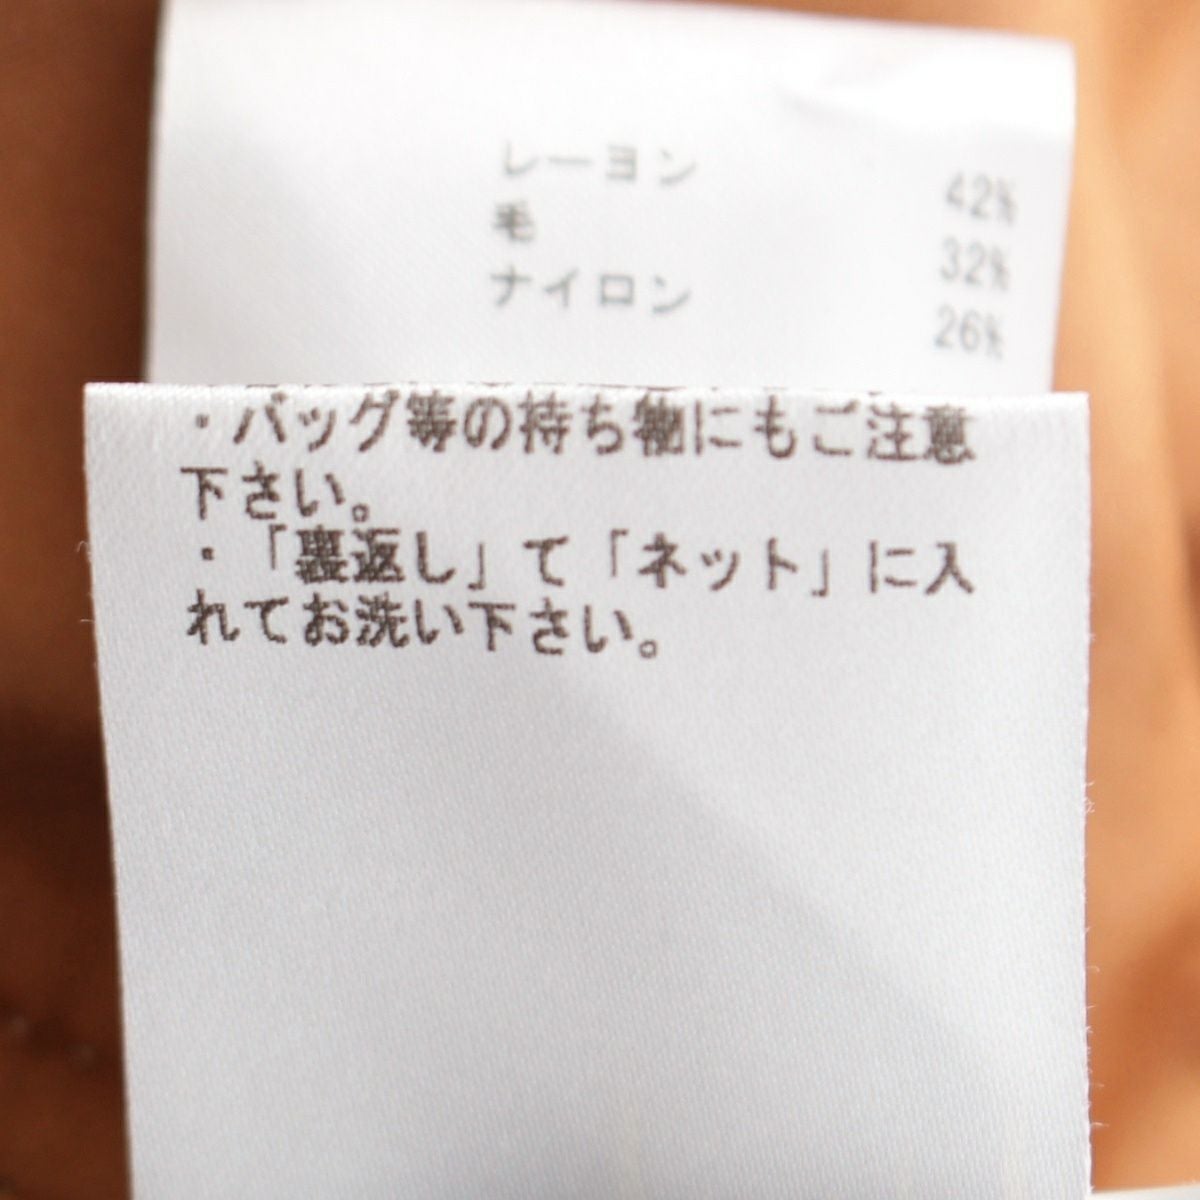 レーヨン 42%
毛 32%
ナイロン 26%
・バッグ等の持ち物にもご注意
下さい。
・「裏返し」て「ネット」に入
れてお洗い下さい。